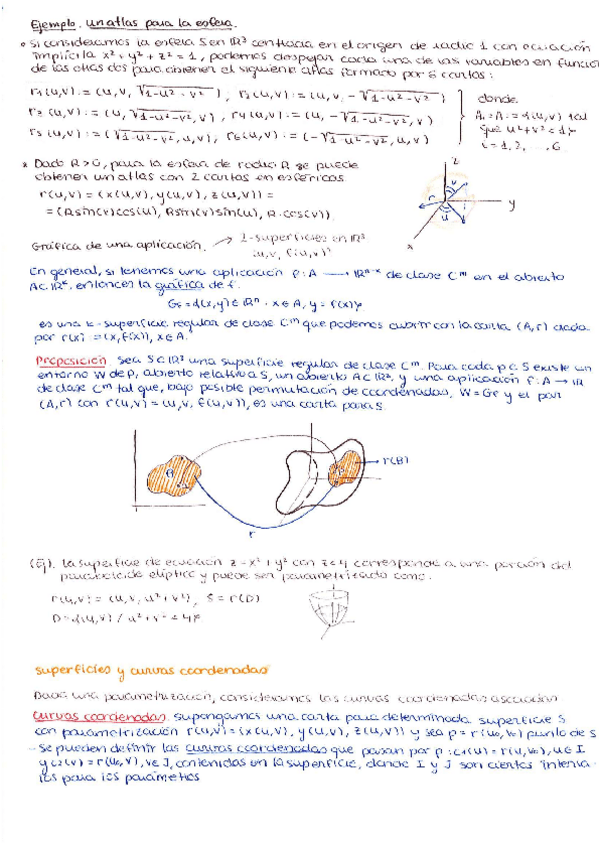 Ejemplo. un atlas para la esfera.
* Si consideramos la esfera S en ℝ³ centrada en el origen de radio 1 con ecuación
implícita x² + y² + z² = 1, podemos despejar cada una de las variables en función
de las otras dos para obtener el siguiente atlas formado por 6 cartas:
r₁(u,v) := (u, v, √1-u²-v²), r₂(u,v) := (u, v, -√1-u²-v²) donde
r₃(u,v) := (u, √1-u²-v², v), r₄(u,v) := (u, -√1-u²-v², v) A₁ = A₁ = {(u,v) tal
r₅(u,v) := (√1-u²-v², u, v), r₆(u,v) := (-√1-u²-v², u, v) que u²+v²<1}
i = 1, 2, ..., 6
* Dado R>0, para la esfera de radio R se puede
obtener un atlas con 2 cartas en esféricas
r(u,v) = (x(u,v), y(u,v), z(u,v)) =
= (R sin(v) cos(u), R sin(v) sin(u), R·cos(v))
z
v
r
u
y
x
Gráfica de una aplicación. → 2-superficies en ℝ³
(u, v, f(u,v))
En general, si tenemos una aplicación f: A → ℝⁿ⁻ᵏ de clase Cᵐ en el abierto
A⊂ℝᵏ, entonces la gráfica de f.
Gf = {(x,y) ∈ ℝⁿ : x ∈ A, y = f(x)}
es una k-superficie regular de clase Cᵐ que podemos cubrir con la carta (A,r) dada
por r(x) := (x, f(x)), x ∈ A.
Proposición sea S⊂ℝ³ una superficie regular de clase Cᵐ. Para cada p∈S existe un
entorno W de p, abierto relativo a S, un abierto A⊂ℝ², y una aplicación f: A → ℝ
de clase Cᵐ tal que, bajo posible permutación de coordenadas, W = Gf y el par
(A,r) con r(u,v) = (u, v, f(u,v)), es una carta para S.
r(B)
r
(Ej). La superficie de ecuación z = x² + y² con z<4 corresponde a una porción del
paraboloide elíptico y puede ser parametrizado como:
r(u,v) = (u, v, u²+v²), S = r(D)
D = {(u,v) / u²+v² < 4}
superficies y curvas coordenadas
Dada una parametrización, consideramos las curvas coordenadas asociadas
curvas coordenadas: supongamos una carta para determinada superficie S
con parametrización r(u,v) = (x(u,v), y(u,v), z(u,v)) y sea p = r(u₀,v₀) punto de S
- Se pueden definir las curvas coordenadas que pasan por p: c₁(u) = r(u,v₀), u∈I
y c₂(v) = r(u₀,v), v∈J, contenidas en la superficie, donde I y J son ciertos interva-
los para los parámetros